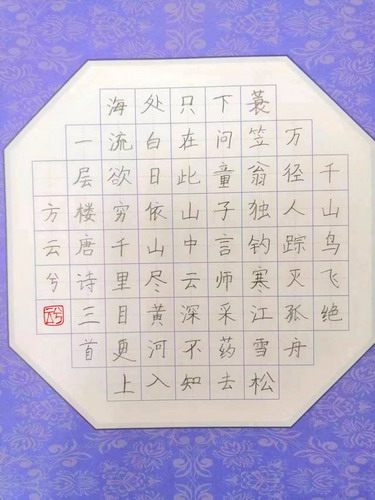 千山鸟飞绝
万径人踪灭孤舟
蓑笠翁独钓寒江雪松
下问童子言师采药去
只在此山中云深不知
处白日依山尽黄河入
海流欲穷千里目更上
一层楼唐诗三首
方云兮